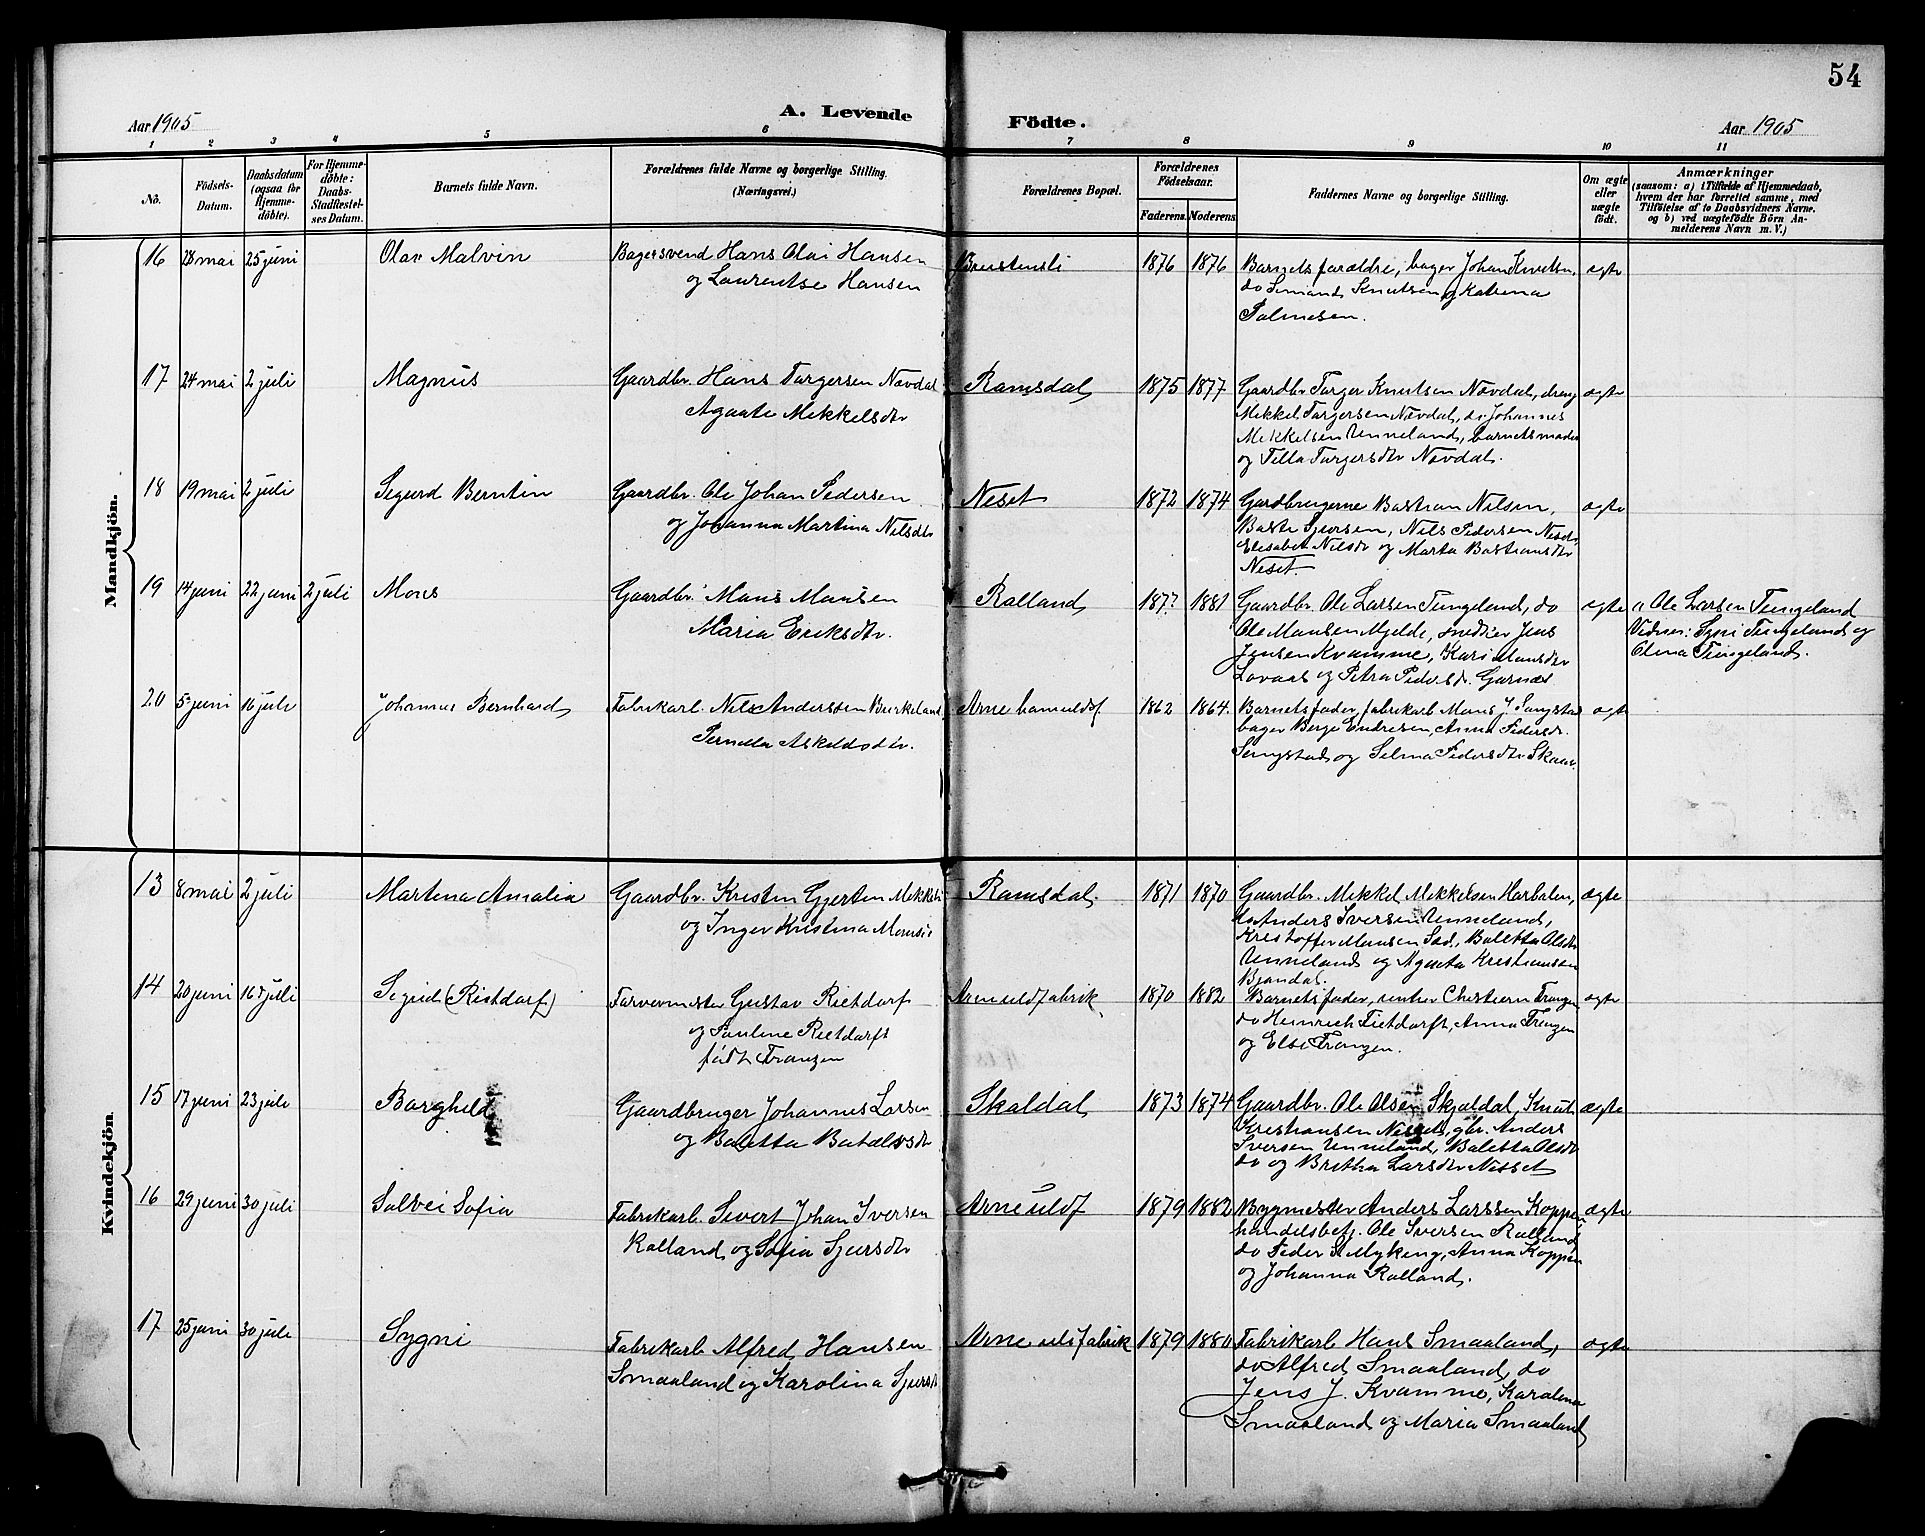 54
A. Levende Födte.
Aar 1905
Aar 1905
1 2 3 4 5 6 7 8 9 10 11
No.
Födsels-Datum.
Daabsdatum (ogsaa för Hjemmedöbte).
For Hjemmedöbte: Daabs-Stadfestelses Datum.
Barnets fulde Navn.
Forældrenes fulde Navne og borgerlige Stilling. (Næringsvei.)
Forældrenes Bopæl.
Forældrenes Födselsaar.
Faderens. Moderens.
Faddernes Navne og borgerlige Stilling.
Om ægte eller uægte födt.
Anmærkninger
(saasom: a) i Tilfælde af Hjemmedaab, hvem der har forrettet samme, med Tilföielse af to Daabsvidners Navne, og b) ved uægtefödte Börn Anmelderens Navn m. V.)
Mandkjön.
16 28 mai 25 juni Olav Malvin
Bagersvend Hans Olai Hansen
og Laurentse Hansen
1876 1876
Barnets forældre, bager Johan Knutsen,
do Knutsen og
egte
17 24 mai 2 juli Magnus
Gaardbr. Hans Torgersen Nævdal
Agaate Mekkelsdtr
Ramsdal 1875 1877
Gaardbr Torger Knutsen Nævdal, dreng
Mekkel Torgersen Nævdal, do Johannes
Mekkelsen Unneland, barnetsmoder
og Tella Torgersdtr Nævdal.
ægte
18 19 mai 2 juli Sigurd Berntin
Gaardbr. Ole Johan Pedersen
og Johanna Martina Nilsdtr
Neset 1872 1874
Gardbrugerne Bastian Nilsen,
Nils Pedersen
Elisabet Nilsdr og Marta Bastiansdtr
Neset.
ægte
19 14 juni 22 juni 2 juli Mons
Gaardbr. Mons Monsen
Maria Eriksdtr.
Ralland 187? 1881
Gaardbr. Ole Larsen Tungeland, do
Ole Monsen Mjelde, snedker Jens
Jensen Kvamme, Kari Monsdtr
og Petra Pedersdr. Garnæs
egte
a Ole Larsen Tungeland
Vidner: Tungeland og
Olina Tungeland.
20 5 juni 16 juli Johannes Bernhard
Fabrikarb. Nils Andersen Birkeland
Pernella Askeldsdtr.
Arne 1862 1864.
Barnetsfader, fabrikarb Mons J. Songstad
bager Berge Endresen, Anna Pedersdr.
Songstad og Selma Pedersdtr
ægt
Kvindekjön.
13 8 mai 2 juli Martina Amalia
Gaardbr. Kristen Gjerten
og Inger Kristina
Ramsdal. 1871 1870
Gaardbr. Mekkel Mekkelsen
do Anders Iversen Unneland,
Kristoffer Monsen Baletta Olsdtr
Unneland og Agaeta Kristiansen
ægte
14 20 juni 16 juli (Rietdorf)
Farvermester Gustav Rietdorf
og Pauline Rietdorft
født Franzen
Arne uldfabrik 1870 1882
Barnetsfader, Franzen
do Heinrich Anna Franzen
og Else Franzen.
ægte
15 17 juni 23 juli Borghild
Gaardbruger Johannes Larsen
og Baletta
Skaldal 1873 1874
Gaardbr. Ole Olsen Skjaldal, Knut
Kristiansen gbr. Anders
Iversen Unneland, Baletta Olsdtr
do og Britha Larsdtr Nesset
ægte
16 29 juni 30 juli Solvei Sofia
Fabrikarb. Sivert Johan Iversen
Ralland og Sofia Sjursdtr
Arne uldf 1879 1882
Bygmester Anders Larssen Koppen
handelsbetj. Ole Iversen Ralland,
do Peder Myking, Anna Koppen
og Johanna Ralland.
ægte
17 25 juni 30 juli Sygni
Fabrikarb Alfred Hansen
Smaaland og Karolina Sjursdt
Arne uldfabrik 1879 1880
Fabrikarb Hans Smaaland,
do Alfred Smaaland, do
Jens J. Kvamme, Karolina
Smaaland og Maria Smaaland
ogte